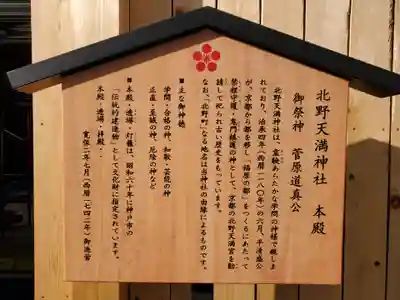 北野天満神社 本殿
御祭神 菅原道真公
北野天満神社は、霊験あらたかな学問の神様で親しま
れており、治承四年（西暦一一八〇年）の六月、平清盛公
が、京都から都を移し「福原の都」をつくるにあたって
禁裡守護・鬼門鎮護の神として、京都の北野天満宮を勧
請して祀られ古い歴史をもっています。
なお、「北野町」なる地名は当神社の由緒によるものです。
■主な御神徳
学問・合格の神 和歌・芸能の神
正直・至誠の神 厄除の神など
■本殿・透塀・灯籠は、昭和六十年に神戸市の
「伝統的建造物」として文化財に指定されています。
本殿・透塀・拝殿‥
寛保二年七月（西暦一七四二年）御造営